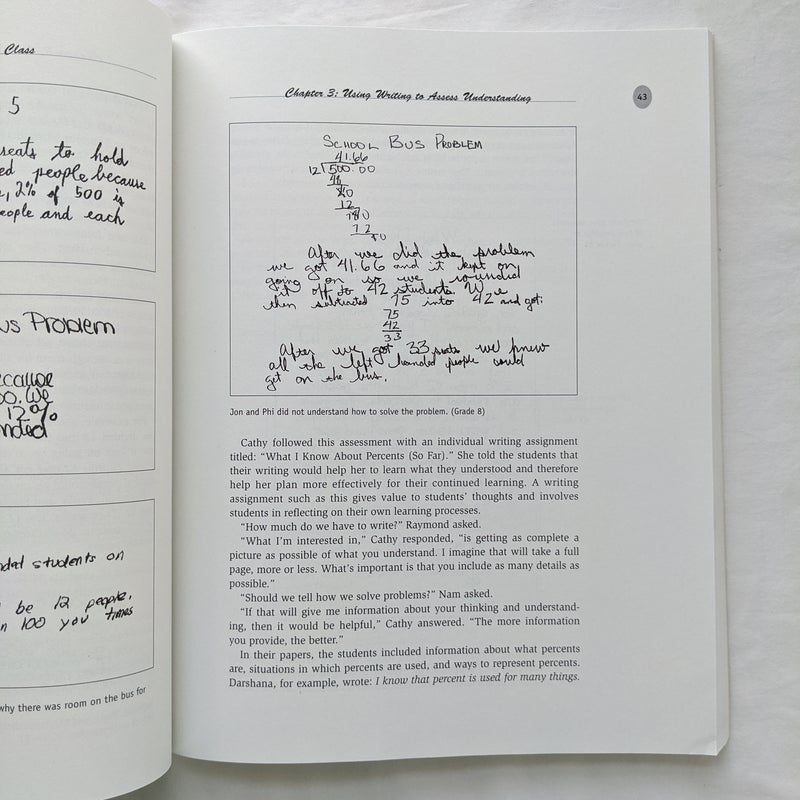 Class
5
seats to hold
ed people because
, 2% of 500 is
eople and each
us Problem
ecause
00. We
12%
nded
nded students on
be 12 people,
n 100 you times
why there was room on the bus for
Chapter 3: Using Writing to Assess Understanding
43
SCHOOL BUS PROBLEM
41.66
12 500.00
48
20
12
80
72
After we did the problem
we got 41.66 and it kept on
going on so we rounded
it off to 42 students. We
then subtracted 75 into 42 and got:
75
42
33
After we got 33 seats we knew
all the left handed people could
get on the bus.
Jon and Phi did not understand how to solve the problem. (Grade 8)
Cathy followed this assessment with an individual writing assignment
titled: “What I Know About Percents (So Far).” She told the students that
their writing would help her to learn what they understood and therefore
help her plan more effectively for their continued learning. A writing
assignment such as this gives value to students’ thoughts and involves
students in reflecting on their own learning processes.
“How much do we have to write?” Raymond asked.
“What I’m interested in,” Cathy responded, “is getting as complete a
picture as possible of what you understand. I imagine that will take a full
page, more or less. What’s important is that you include as many details as
possible.”
“Should we tell how we solve problems?” Nam asked.
“If that will give me information about your thinking and understand-
ing, then it would be helpful,” Cathy answered. “The more information
you provide, the better.”
In their papers, the students included information about what percents
are, situations in which percents are used, and ways to represent percents.
Darshana, for example, wrote: I know that percent is used for many things.